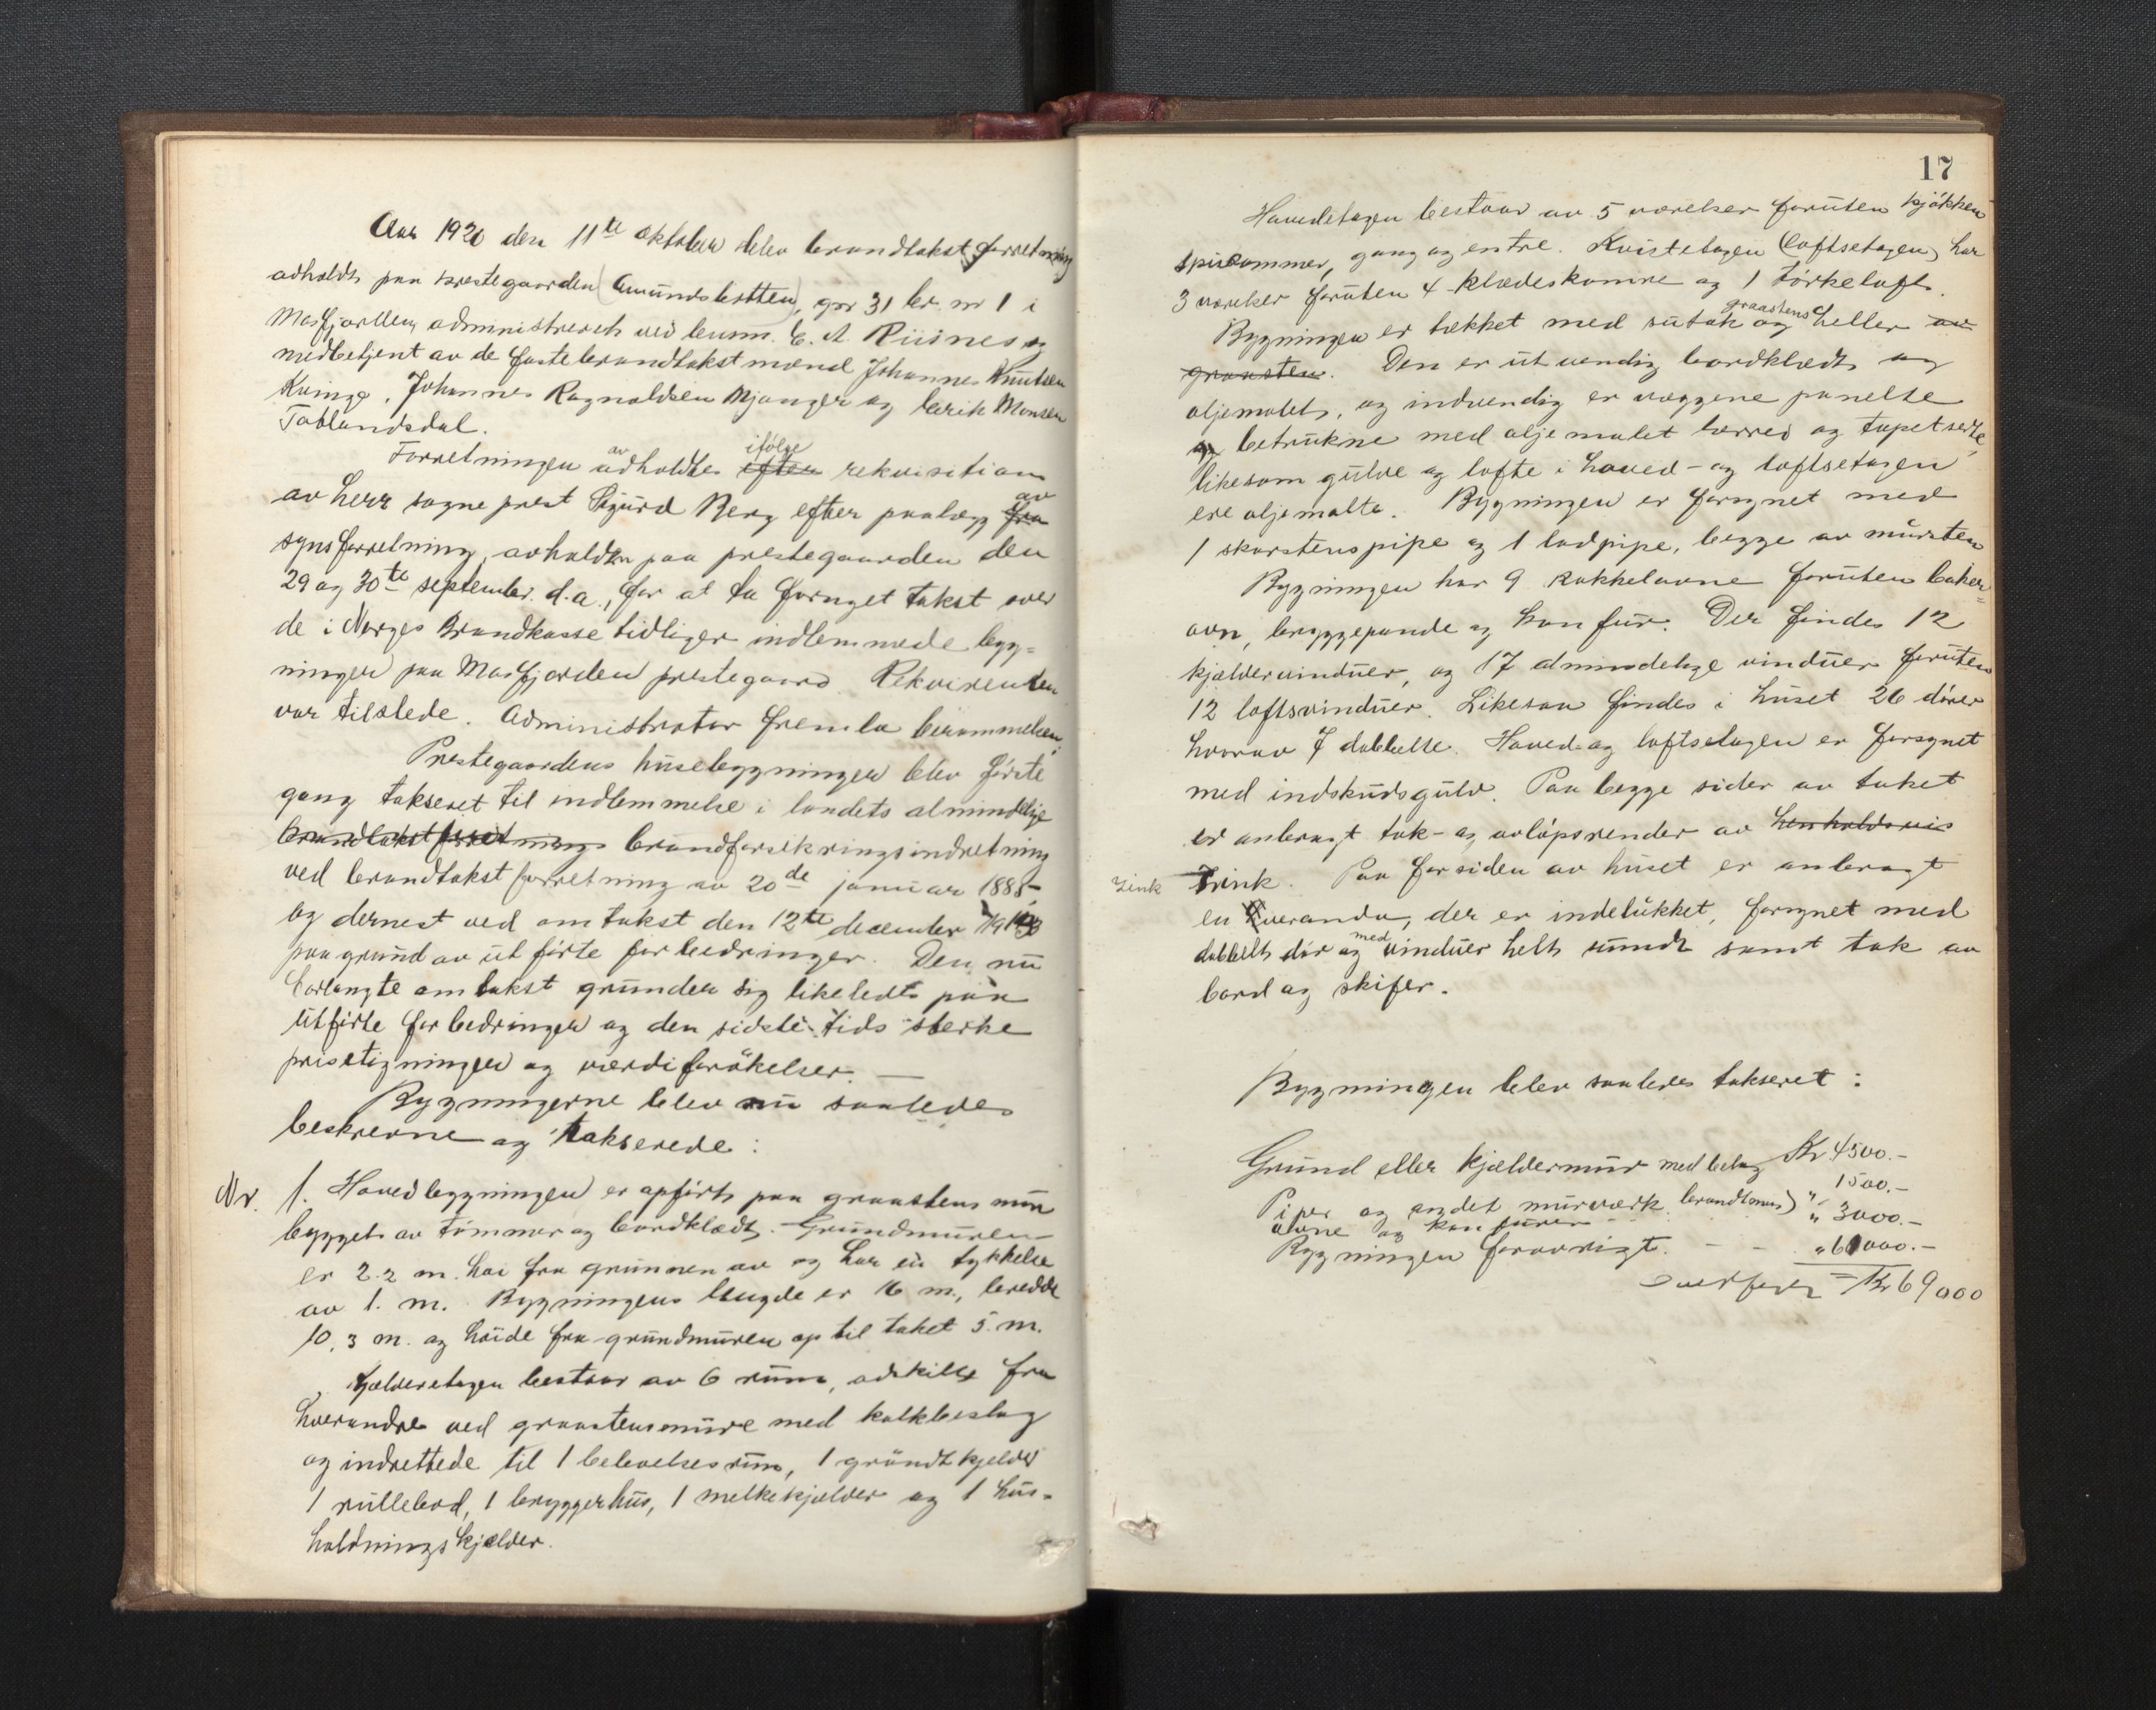 Aar 1920 den 11te oktober blev brandtakstforretning
avholdt paa prestegaarden (Amundsbotten), gnr 31 br. nr 1 i
Masfjorden, administreret ved lensm. E. A. Riisnes og
medbetjent av de faste brandtakstmænd Johannes Knutsen
Kvinge, Johannes Ragnaldsen Mjanger og Erik Monsen
Toblandsdal.
Forretningen avholdtes efter ifølge rekvisition
av herr sogneprest Sigurd Berg efter paalegg fra av
synsforretning, avholdt paa prestegaarden den
29 og 30te september d.a., for at fa fornyet takst over
de i Norges Brandkasse tidliger indlemmede byg-
ninger paa Masfjorden prestegaard. Rekvirenten
var tilstede. Administrator fremla berammelsen.
Prestegaardens husebygninger blev første
gang takseret til indlemmelse i landets almindelige
brandtakstforretnings brandforsikringsindretning
ved brandtakstforretning av 20de januar 1885
og dernest ved omtakst den 12te december
paa grund av utførte forbedringer. Den nu
forlangte omtakst grunder sig likeledes paa
utførte forbedringer og den sidste tids sterke
prisstigninger og værdiforøkelser. —
Bygningerne blev nu saaledes
beskrevne og takserede:
Nr. 1. Hovedbygningen er opført paa graastens mur
bygget av tømmer og bordklædt. Grundmuren
er 2.2 m. høi fra grunnen av og har en tykkelse
av 1. m. Bygningens lengde er 16 m., bredde
10,3 m. og høide fra grundmuren op til taket 5. m.
Kjælderetagen bestaar av 6 rum, adskilte fra
hverandre ved graastensmure med kalkbeslag
og indrettede til 1 belevelsesrum, 1 grøndtkjelder
1 rullebod, 1 bryggerhus, 1 melkekjælder og 1 hus-
holdningskjælder.
17
Hovedetagen bestaar av 5 værelser foruten kjøkken
spiscammer, gang og entre. Kvistetagen (loftsetagen) har
3 værelser foruten 4 klædeskamre og 1 tørkeloft.
Bygningen er tækket med sutak og graastens heller av
graasten. Den er utvendig bordklædt og
oljemalet, og indvendig er væggene panelte
og betrukne med oljemalet lerred og tapetserte,
likesom gulve og lofte i hoved- og loftsetagen
ere oljemalte. Bygningen er forsynet med
1 skorstenspipe og 1 lodpipe, begge av mursten
Bygningen har 9 kakkelovne foruten baker-
ovn, bryggepande og komfur. Der findes 12
kjældervinduer, og 17 almindelige vinduer foruten
12 loftsvinduer. Likesaa findes i huset 26 dører
hvorav 7 dobbelte. Hoved- og loftsetagen er forsynet
med indskudsgulv. Paa begge sider av taket
er anbragt tak- og avløpsrender av henholdsvis
Zink Trink. Paa forsiden av huset er anbragt
en veranda, der er indelukket, forsynet med
dobbelt dør og med vinduer helt rundt samt tak av
bord og skifer.
Bygningen blev saaledes takseret:
Grund eller kjældermur med belæg Kr 4500.-
Piper og andet murverk brandtmur) " 1500.-
ovne og komfurer - - " 3000.-
Bygningen forøvrigt. - - " 60000.-
Kr 69000